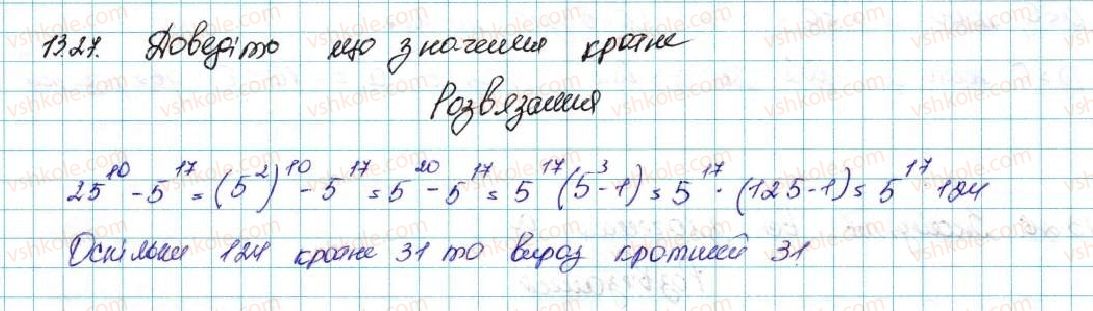 13.27. Доведіто що значення кратне
Розвязання
25^10 - 5^17 = (5^2)^10 - 5^17 = 5^20 - 5^17 = 5^17 (5^3 - 1) = 5^17 · (125 - 1) = 5^17 · 124
Оскільки 124 кратне 31 то вираз кратний 31